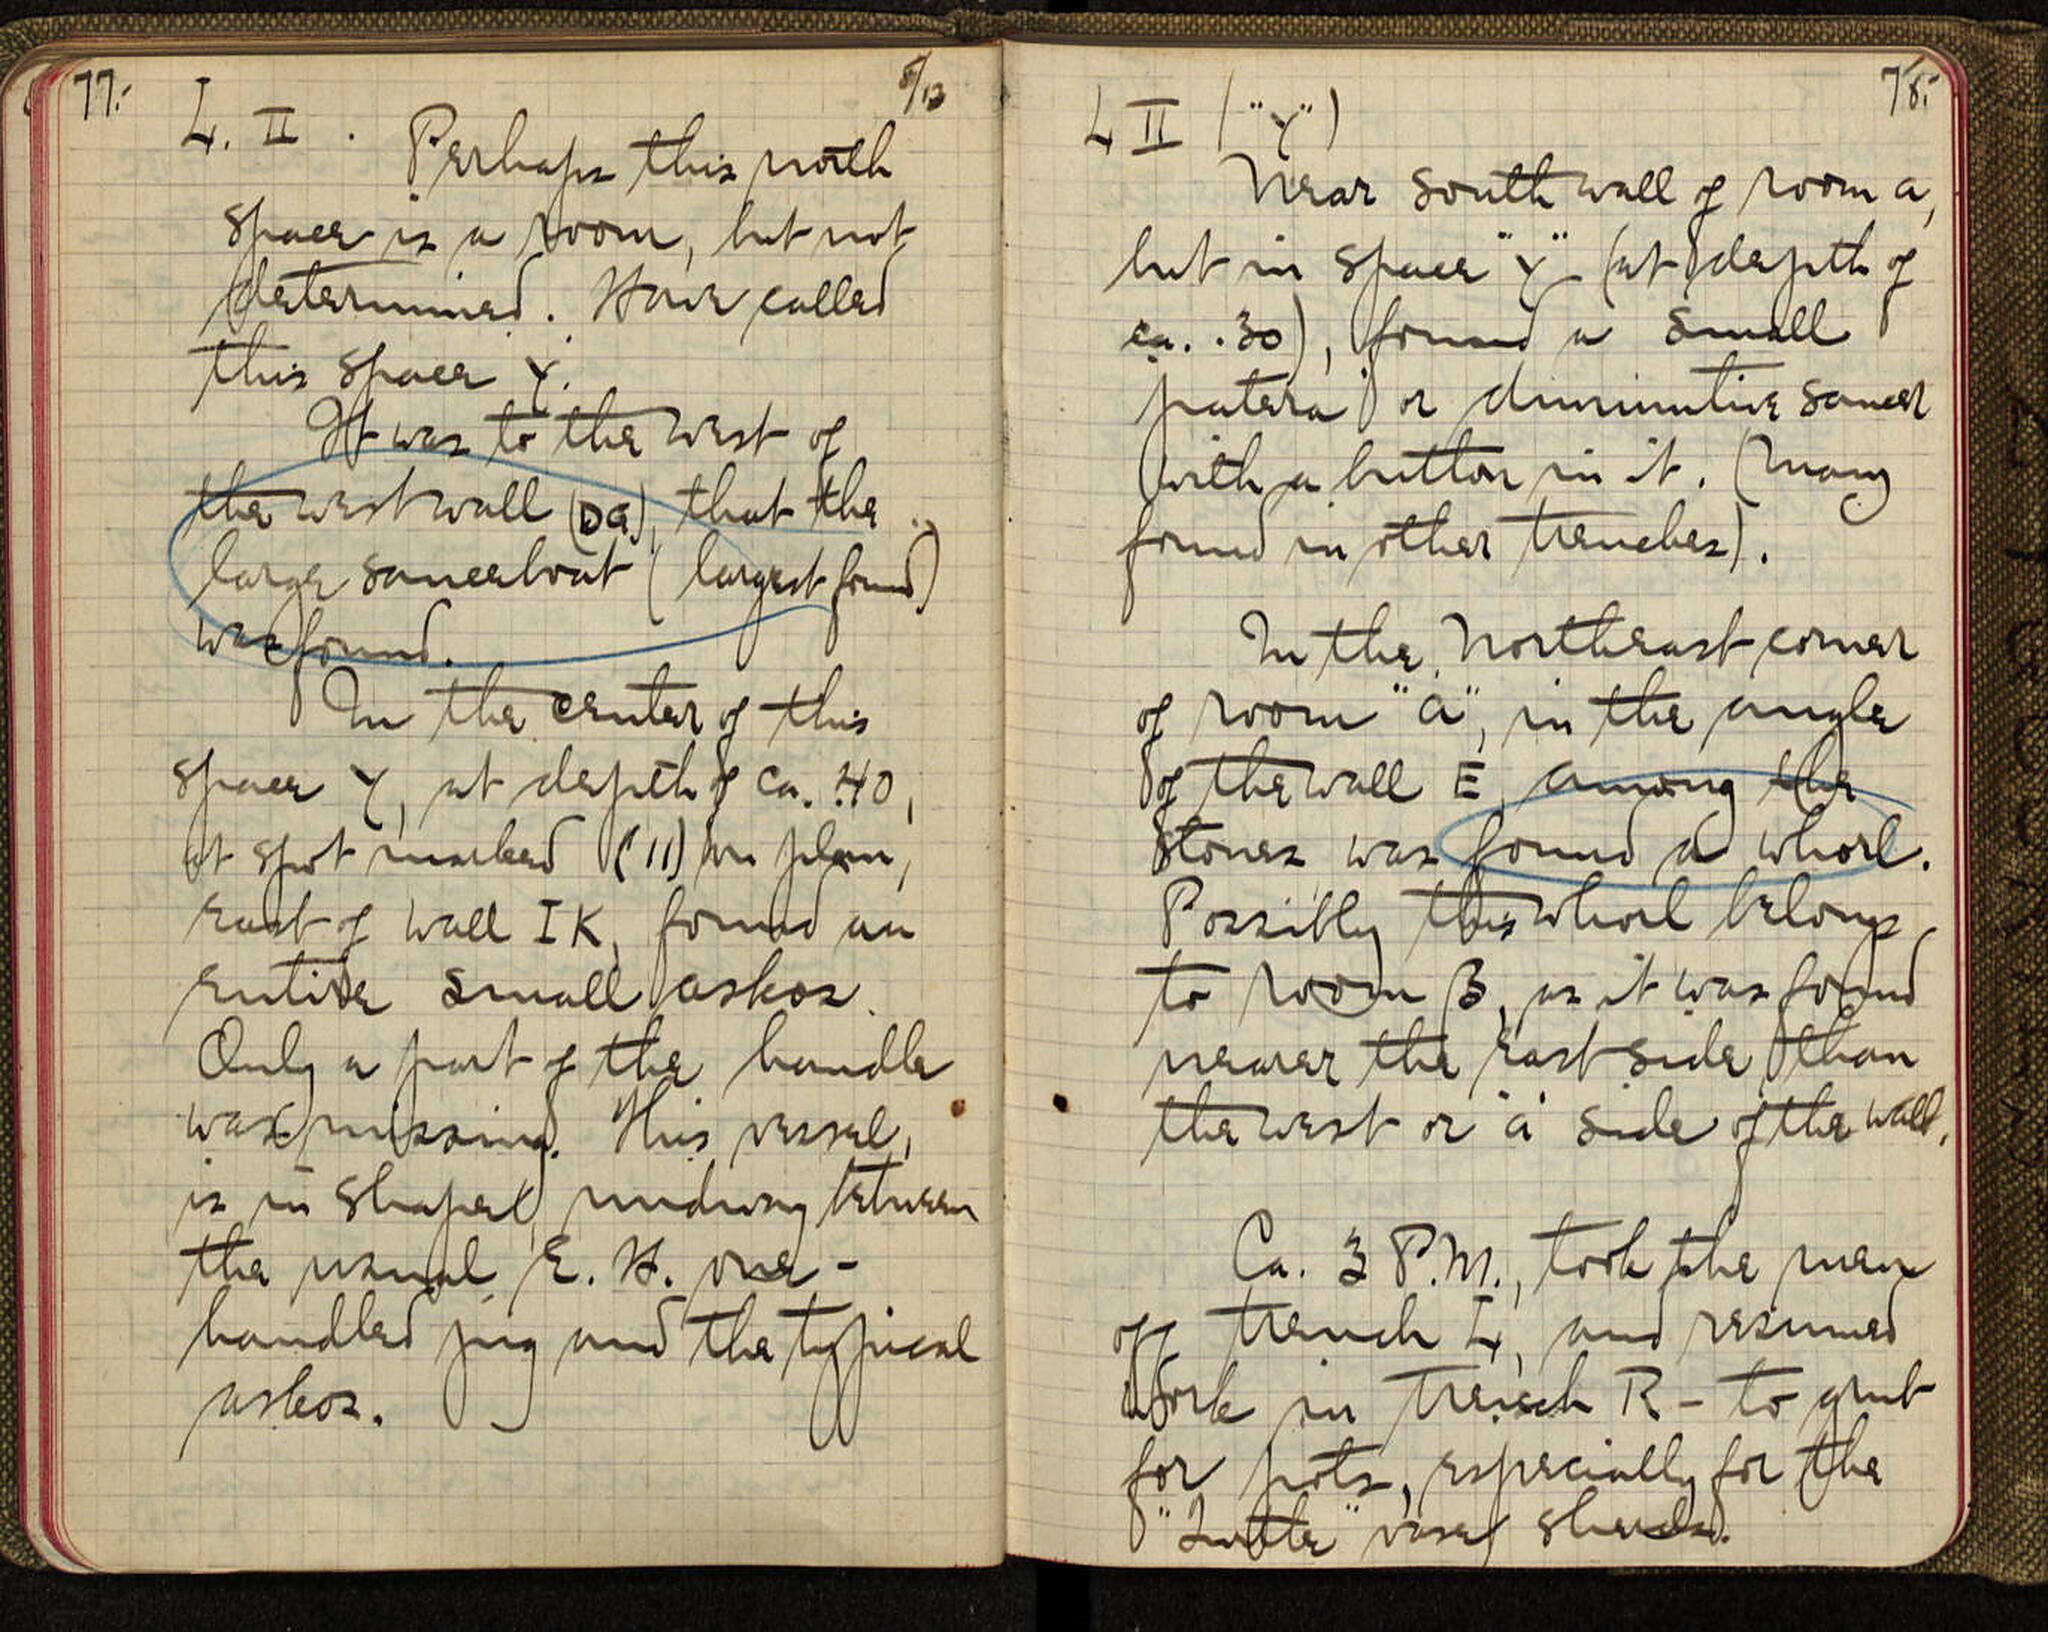 77.-
5/13
L. II . Perhaps this north
space is a room, but not
determined. Have called
this space Y.
It was to the west of
the west wall (DG), that the
large sauceboat (largest found)
was found.
In the center of this
space Y, at depth of ca. .40,
at spot marked (11) on plan,
east of wall IK, found an
entire small askos.
Only a part of the handle
was missing. This vessel,
is in shape, midway between
the usual E. H. one-
handled jug and the typical
askos.
78.-
L II ("Y")
Near south wall of room a,
but in space "Y" (at depth of
ca. .30), found a small
patera or diminutive saucer
with a button in it. (Many
found in other trenches).
In the Northeast corner
of room "a", in the angle
of the wall E, among the
stones was found a whorl.
Possibly this whorl belongs
to room B, as it was found
nearer the east side than
the west or "a" side of the wall.
Ca. 3 P.M., took the men
off trench L, and resumed
work in trench R - to grub
for pots, especially for the
vase sherds.